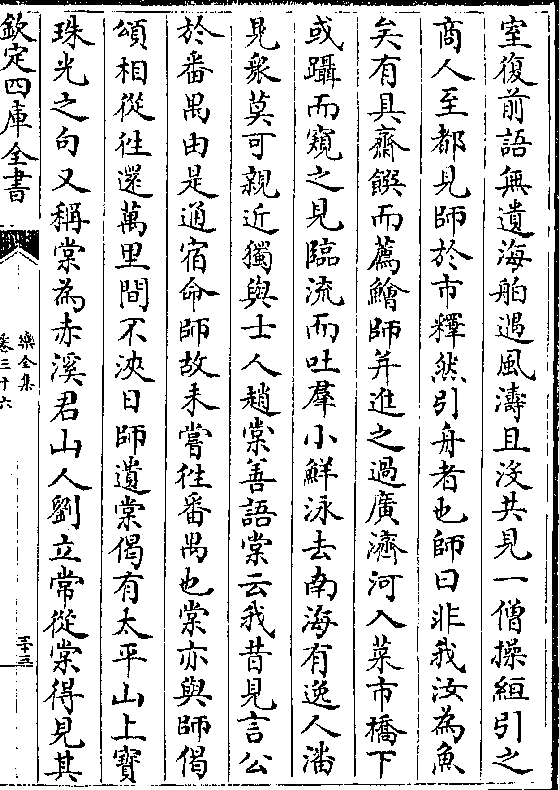 室復前語無遺海舶遇風濤且没共見一僧操絙引之
商人至都見師於市釋然引舟者也師曰非我汝為魚
矣有具齋饌而薦鱠師并進之過廣濟河入菜市橋下
或躡而窺之見臨流而吐羣小鮮泳去南海有逸人潘
見衆莫可親近獨與士人趙棠善語棠云我昔見言公
於番禺由是通宿命師故未嘗往番禺也棠亦與師偈
頌相從往還萬里間不浹日師遺棠偈有太平山上寶
珠光之句又稱棠為赤溪君山人劉立常從棠得見其
欽定四庫全書
樂全集
卷三十六
三十三